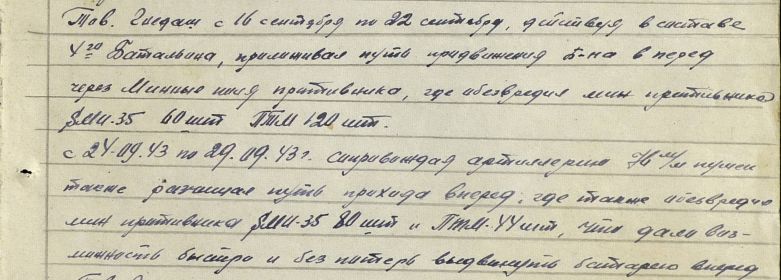 Тов. с 16 сентября по 22 сентября, действуя в составе
4го Батальона, пролаживая путь продвижения б-на в перед
через Минные поля противника, где обезвредил мин противника
ЯМИ-35 60 шт ПТМ 120 шт.
с 24-09.43 по 29.09.43г. сопровождая артиллерию 76 м/м пушек
также расчищая путь прохода вперед, где также обезвредил
мин противника ЯМИ-35 80 шт и ПТМ-44 шт, что дало воз-
можность быстро и без потерь выдвинуть батарею вперед